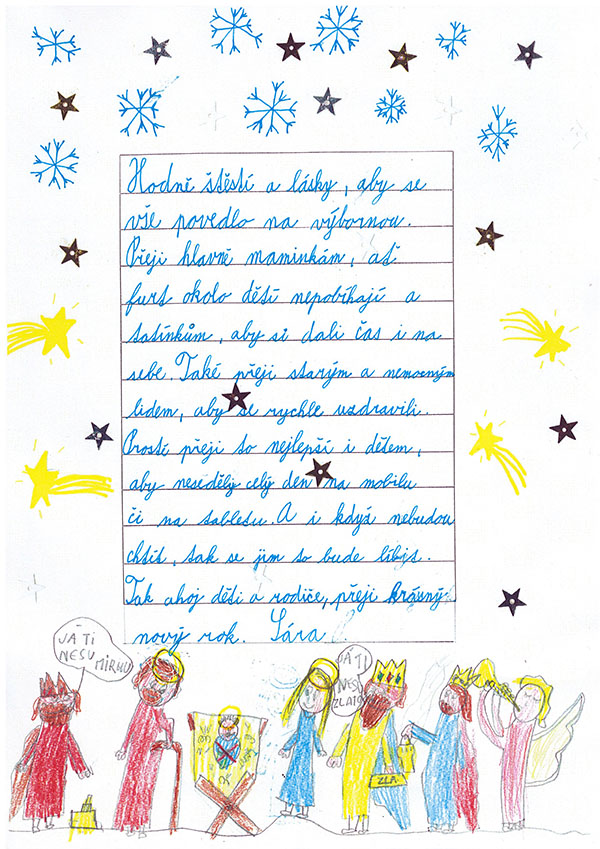 Hodně štěstí a lásky, aby se
vše povedlo na výbornou.
Přeji hlavně maminkám, ať
furt okolo dětí nepobíhají a
tatínkům, aby si dali čas i na
sebe. Také přeji starým a nemocným
lidem, aby se rychle uzdravili.
Prostí přeji to nejlepší i dětem,
aby neseděly celý den na mobilu
či na tabletu. A i když nebudou
chtít, tak se jim to bude líbit.
Tak ahoj děti a rodiče, přeji krásný
nový rok. Sára
JÁ TI
NESU
MIRHU
JÁ TI
NESU
ZLATO
ZLA